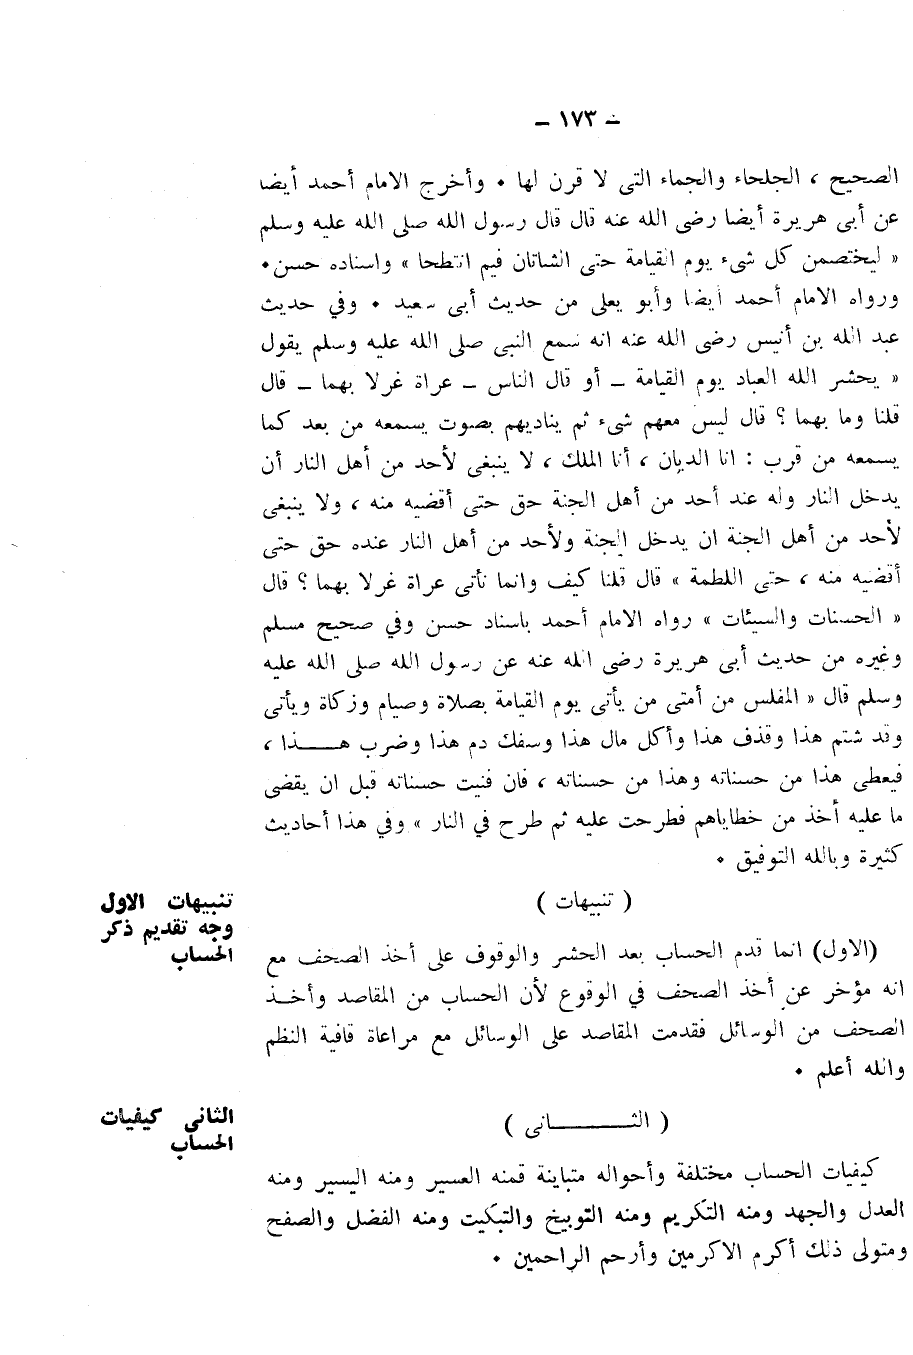 – ١٧٣ –
الصحيح ، الجلحاء والجماء التى لا قرن لها ٠ وأخرج الامام أحمد أيضا
عن أبى هريرة أيضا رضى الله عنه قال قال رسول الله صلى الله عليه وسلم
« ليختصمن كل شىء يوم القيامة حتى الشاتان فيم انتطحا » واسناده حسن٠
ورواه الامام أحمد أيضا وأبو يعلى من حديث أبى سعيد ٠ وفي حديث
عبد الله بن أنيس رضى الله عنه انه سمع النبى صلى الله عليه وسلم يقول
« يحشر الله العباد يوم القيامة – أو قال الناس – عراة غرلا بهما – قال
قلنا وما بهما ؟ قال ليس معهم شىء ثم يناديهم بصوت يسمعه من بعد كما
يسمعه من قرب : انا الديان ، أنا الملك ، لا ينبغى لأحد من أهل النار أن
يدخل النار وله عند أحد من أهل الجنة حق حتى أقضيه منه ، ولا ينبغى
لأحد من أهل الجنة ان يدخل الجنة ولأحد من أهل النار عنده حق حتى
أقضيه منه ، حتى اللطمة » قال قلنا كيف وانما نأتى عراة غرلا بهما ؟ قال
« الحسنات والسيئات » رواه الامام أحمد باسناد حسن وفي صحيح مسلم
وغيره من حديث أبى هريرة رضى الله عنه عن رسول الله صلى الله عليه
وسلم قال « المفلس من أمتى من يأتى يوم القيامة بصلاة وصيام وزكاة ويأتى
وقد شتم هذا وقذف هذا وأكل مال هذا وسفك دم هذا وضرب هـــــذا ،
فيعطى هذا من حسناته وهذا من حسناته ، فان فنيت حسناته قبل ان يقضى
ما عليه أخذ من خطاياهم فطرحت عليه ثم طرح في النار » وفي هذا أحاديث
كثيرة وبالله التوفيق ٠
( تنبيهات )
تنبيهات الاول
وجه تقديم ذكر
الحساب
(الاول) انما قدم الحساب بعد الحشر والوقوف على أخذ الصحف مع
انه مؤخر عن أخذ الصحف في الوقوع لأن الحساب من المقاصد وأخـذ
الصحف من الوسائل فقدمت المقاصد على الوسائل مع مراعاة قافية النظم
والله أعلم ٠
( الثـــــــــانى )
الثانى كيفيات
الحساب
كيفيات الحساب مختلفة وأحواله متباينة قمنه العسير ومنه اليسير ومنه
العدل والجهد ومنه التكريم ومنه التوبيخ والتبكيت ومنه الفضل والصفح
ومتولى ذلك أكرم الاكرمين وأرحم الراحمين ٠